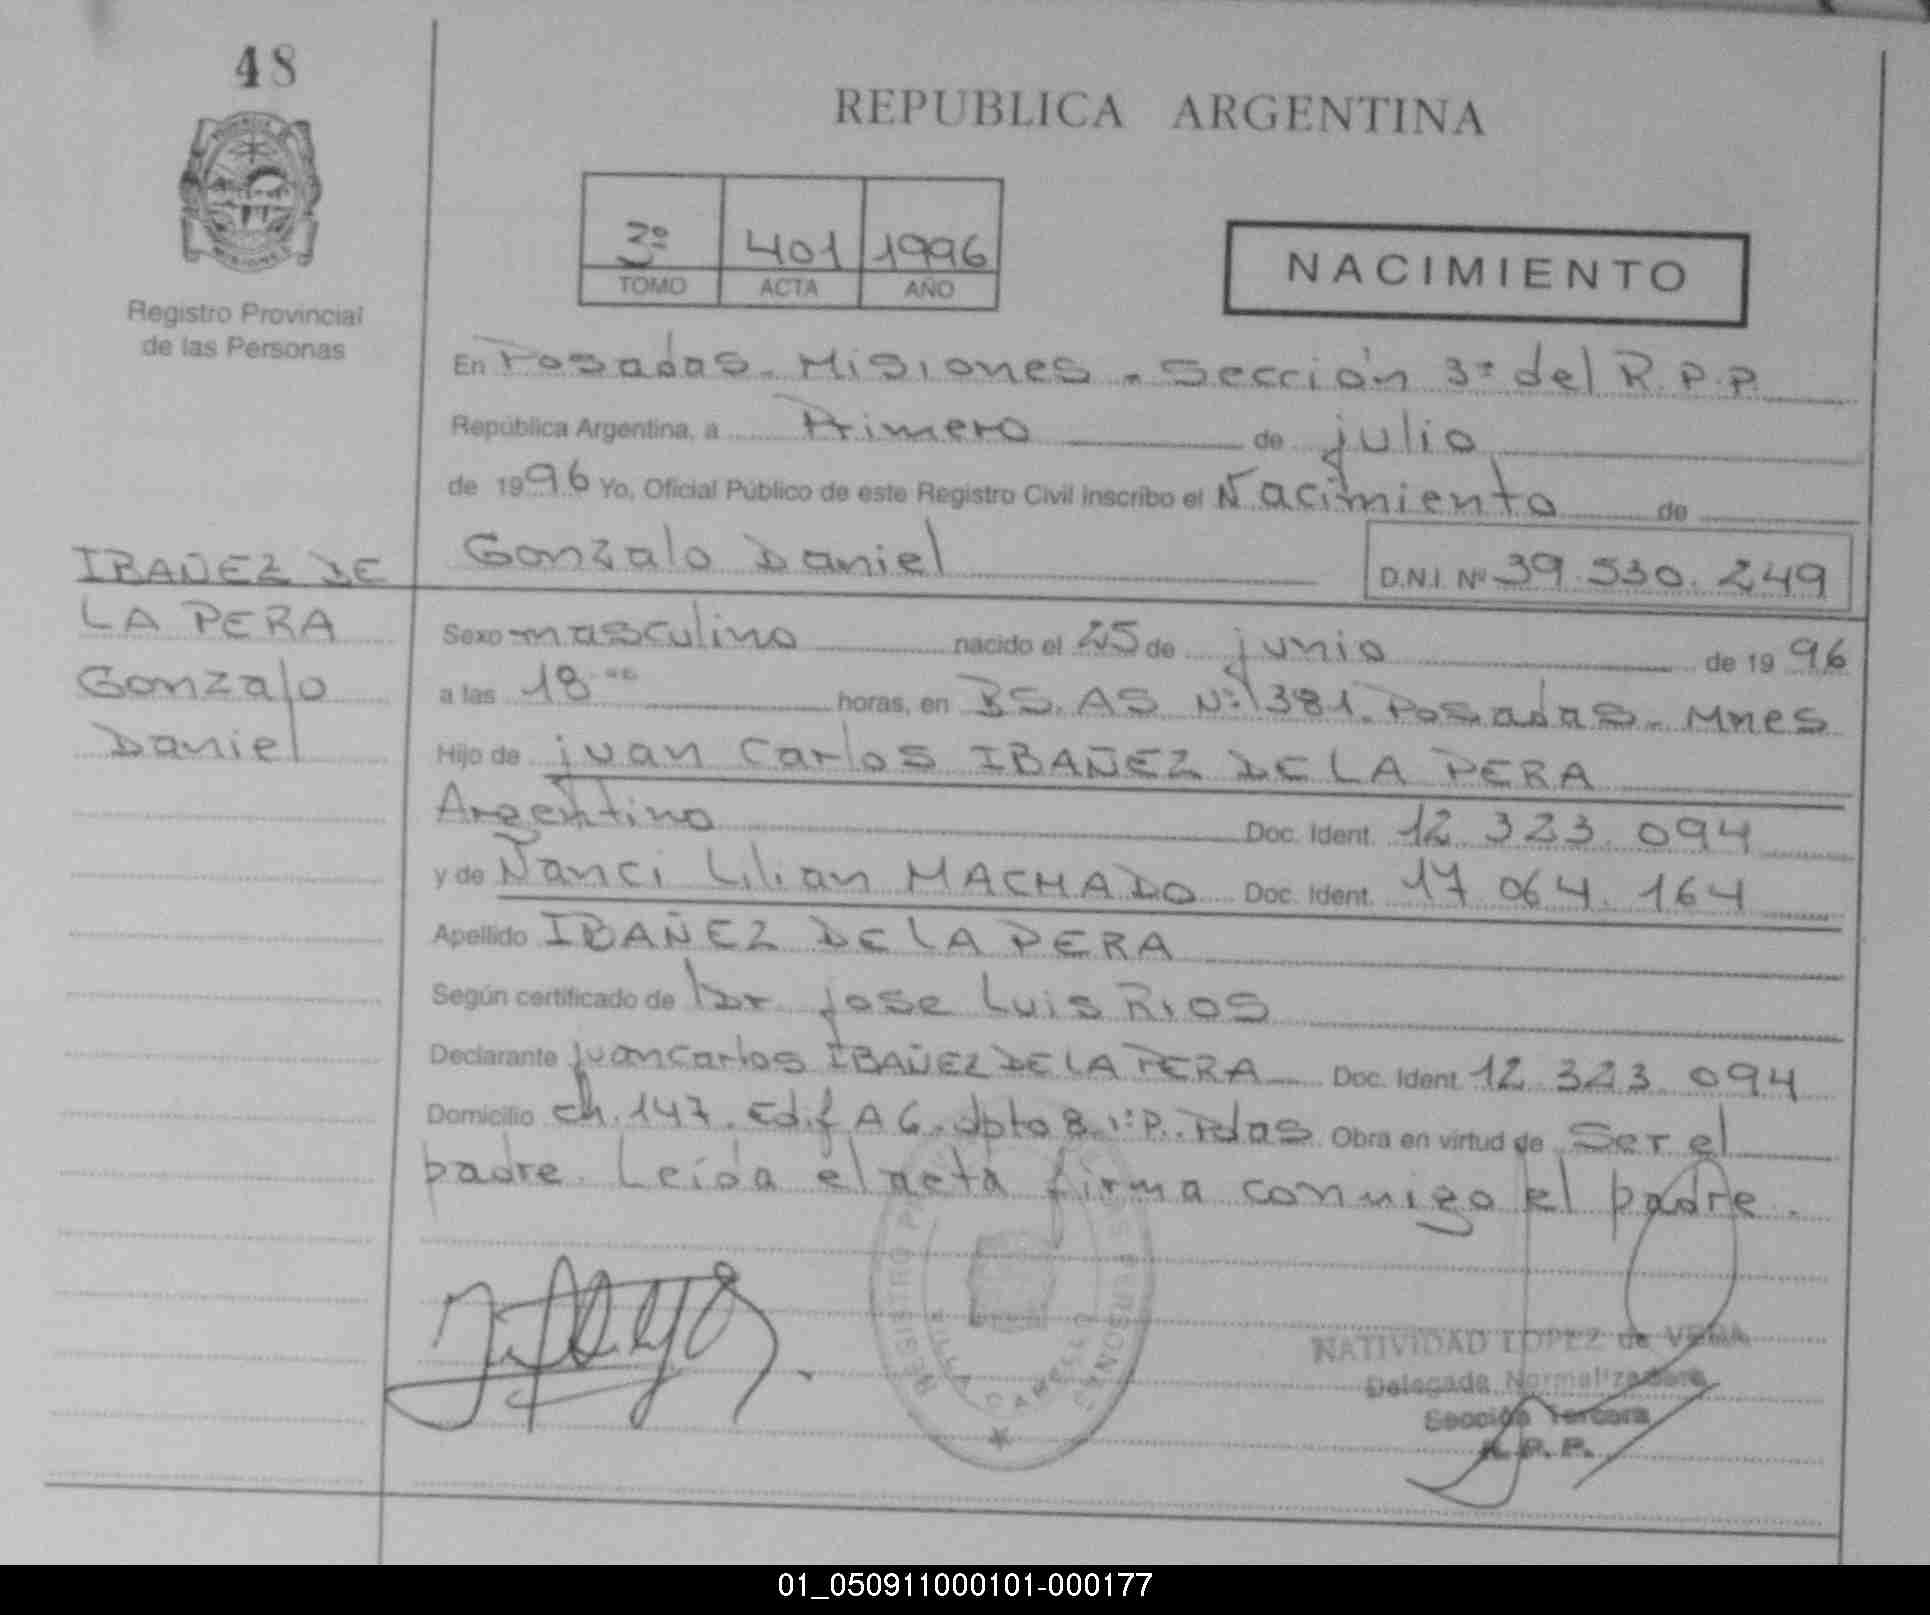 48
REPUBLICA ARGENTINA
3º 401 1996
TOMO ACTA AÑO
NACIMIENTO
Registro Provincial
de las Personas
En Posadas - Misiones - Sección 3ª del R.P.P
República Argentina, a Primero de julio
de 1996 Yo, Oficial Público de este Registro Civil inscribo el Nacimiento de
Gonzalo Daniel D.N.I. Nº 39.530.249
IBAÑEZ DE
LA PERA
Gonzalo
Daniel
Sexo masculino nacido el 25 de junio de 1996
a las 18 horas, en BS.AS Nº 1381. Posadas - Mnes
Hijo de juan Carlos IBAÑEZ DE LA PERA
Argentino Doc. Ident. 12 323 094
y de Nanci Lilian MACHADO Doc. Ident. 17 064.164
Apellido IBAÑEZ DE LA PERA
Según certificado de Dr jose Luis Rios
Declarante juan Carlos IBAÑEZ DE LA PERA Doc. Ident 12 323.094
Domicilio ch.147. Edif A 6. dpto 8. 1º P. Pdas. Obra en virtud de Ser el
padre. Leída el acta firma conmigo el padre.
REGISTRO PERSONAS
VILLA CABELLO
NATIVIDAD LOPEZ de VERA
Delegada Normalizadora
Sección Tercera
R.P.P.
01_050911000101-000177